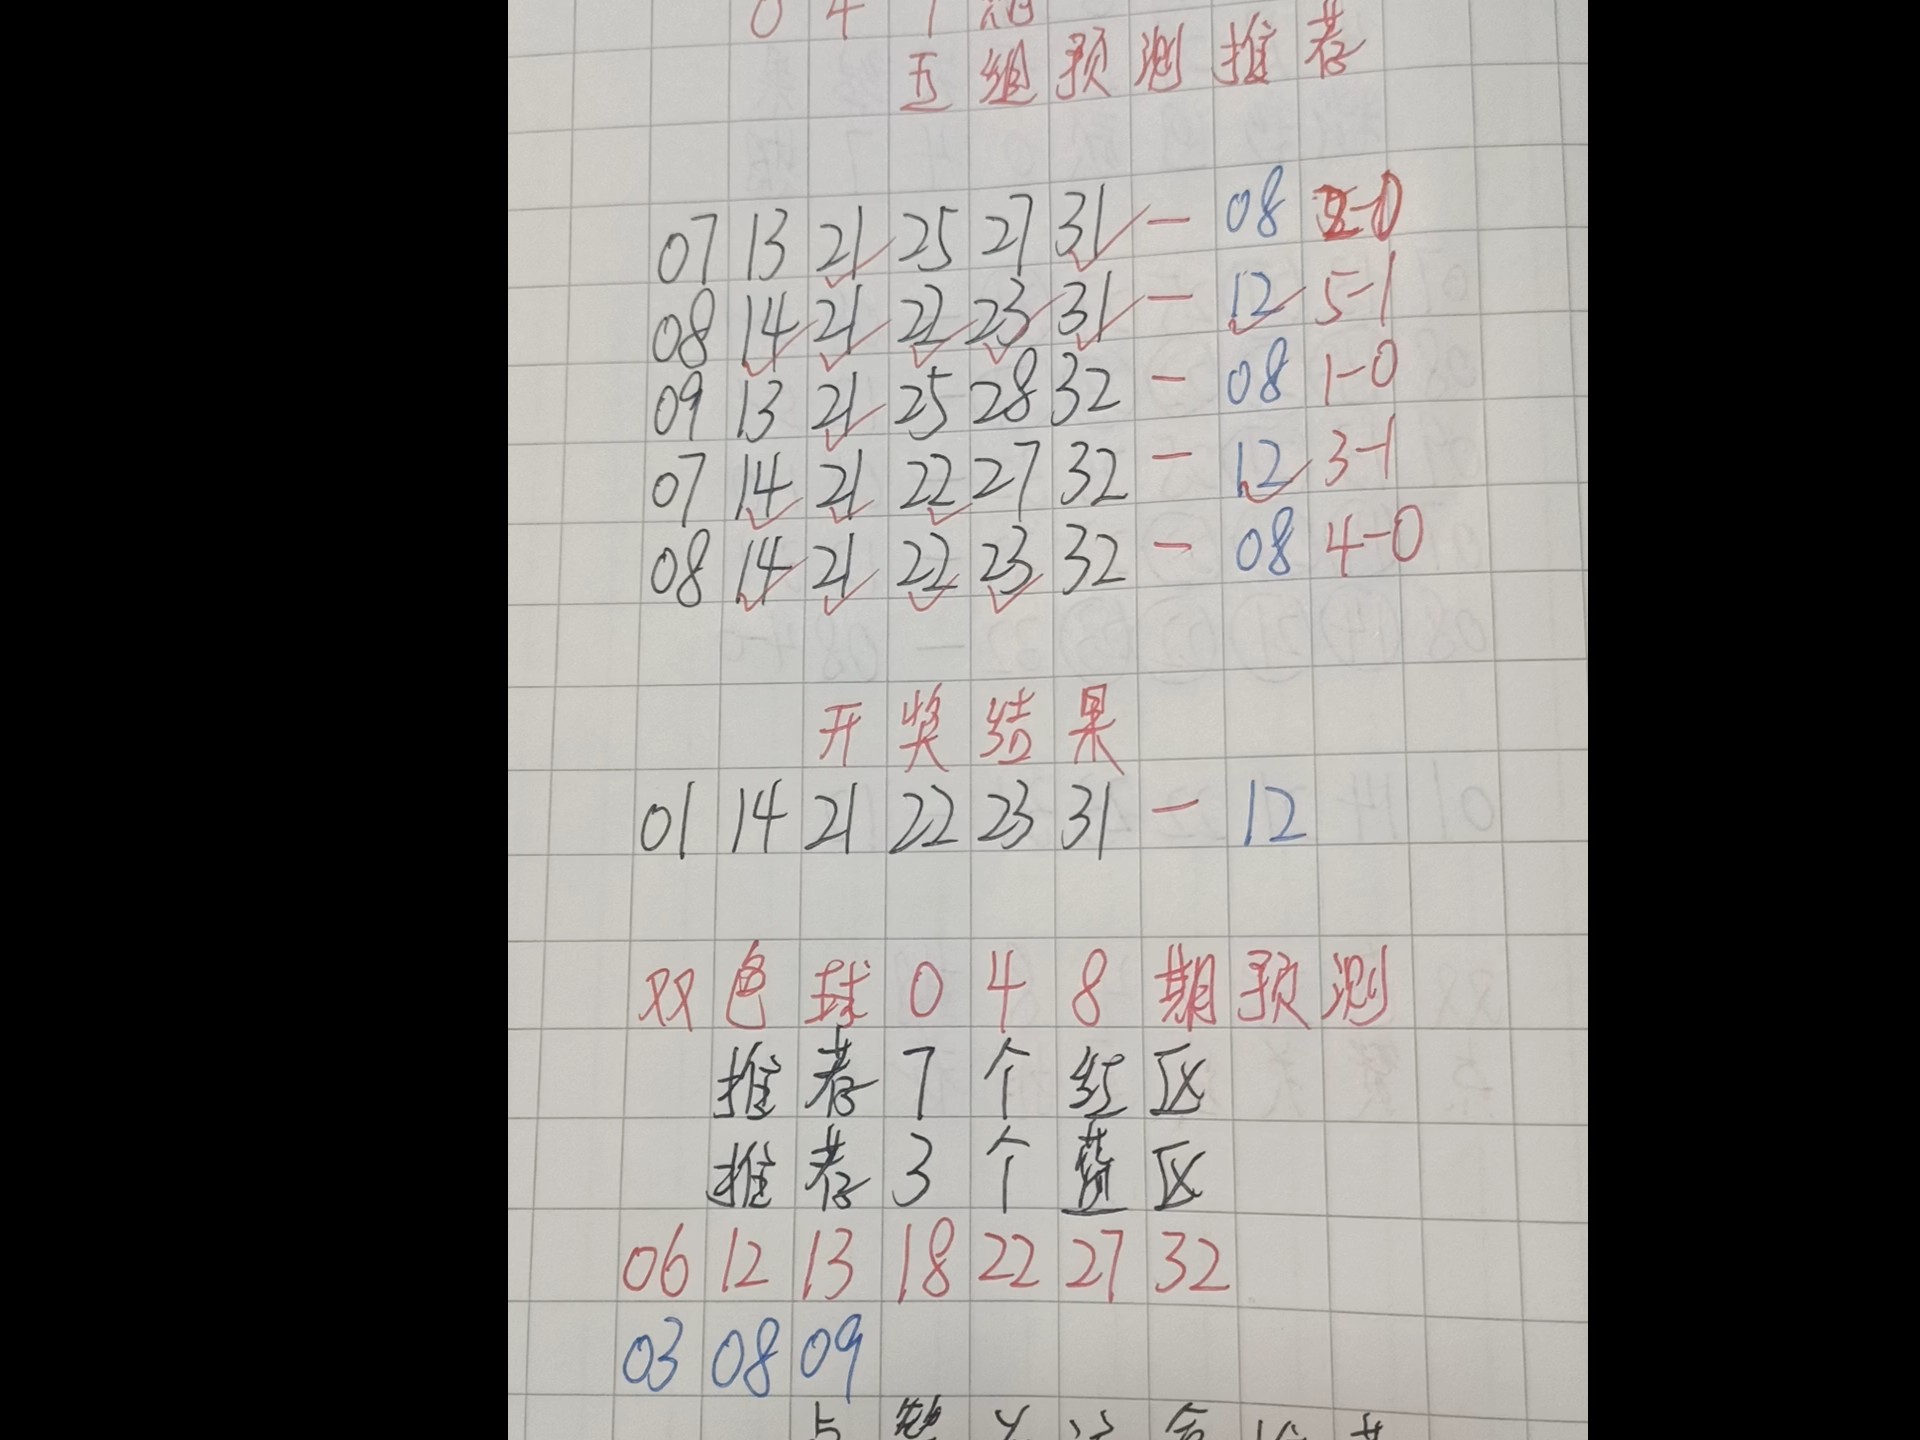 0 4 7
五组预测推荐
07 13 21 25 27 31 - 08 2-0
08 14 21 22 23 31 - 12 5-1
09 13 21 25 28 32 - 08 1-0
07 14 21 22 27 32 - 12 3-1
08 14 21 22 23 32 - 08 4-0
开奖结果
01 14 21 22 23 31 - 12
双色球048期预测
推荐7个红区
推荐3个蓝区
06 12 13 18 22 27 32
03 08 09